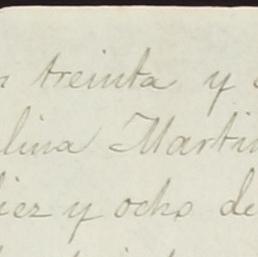 treinta y
lina Martin
diez y ocho de